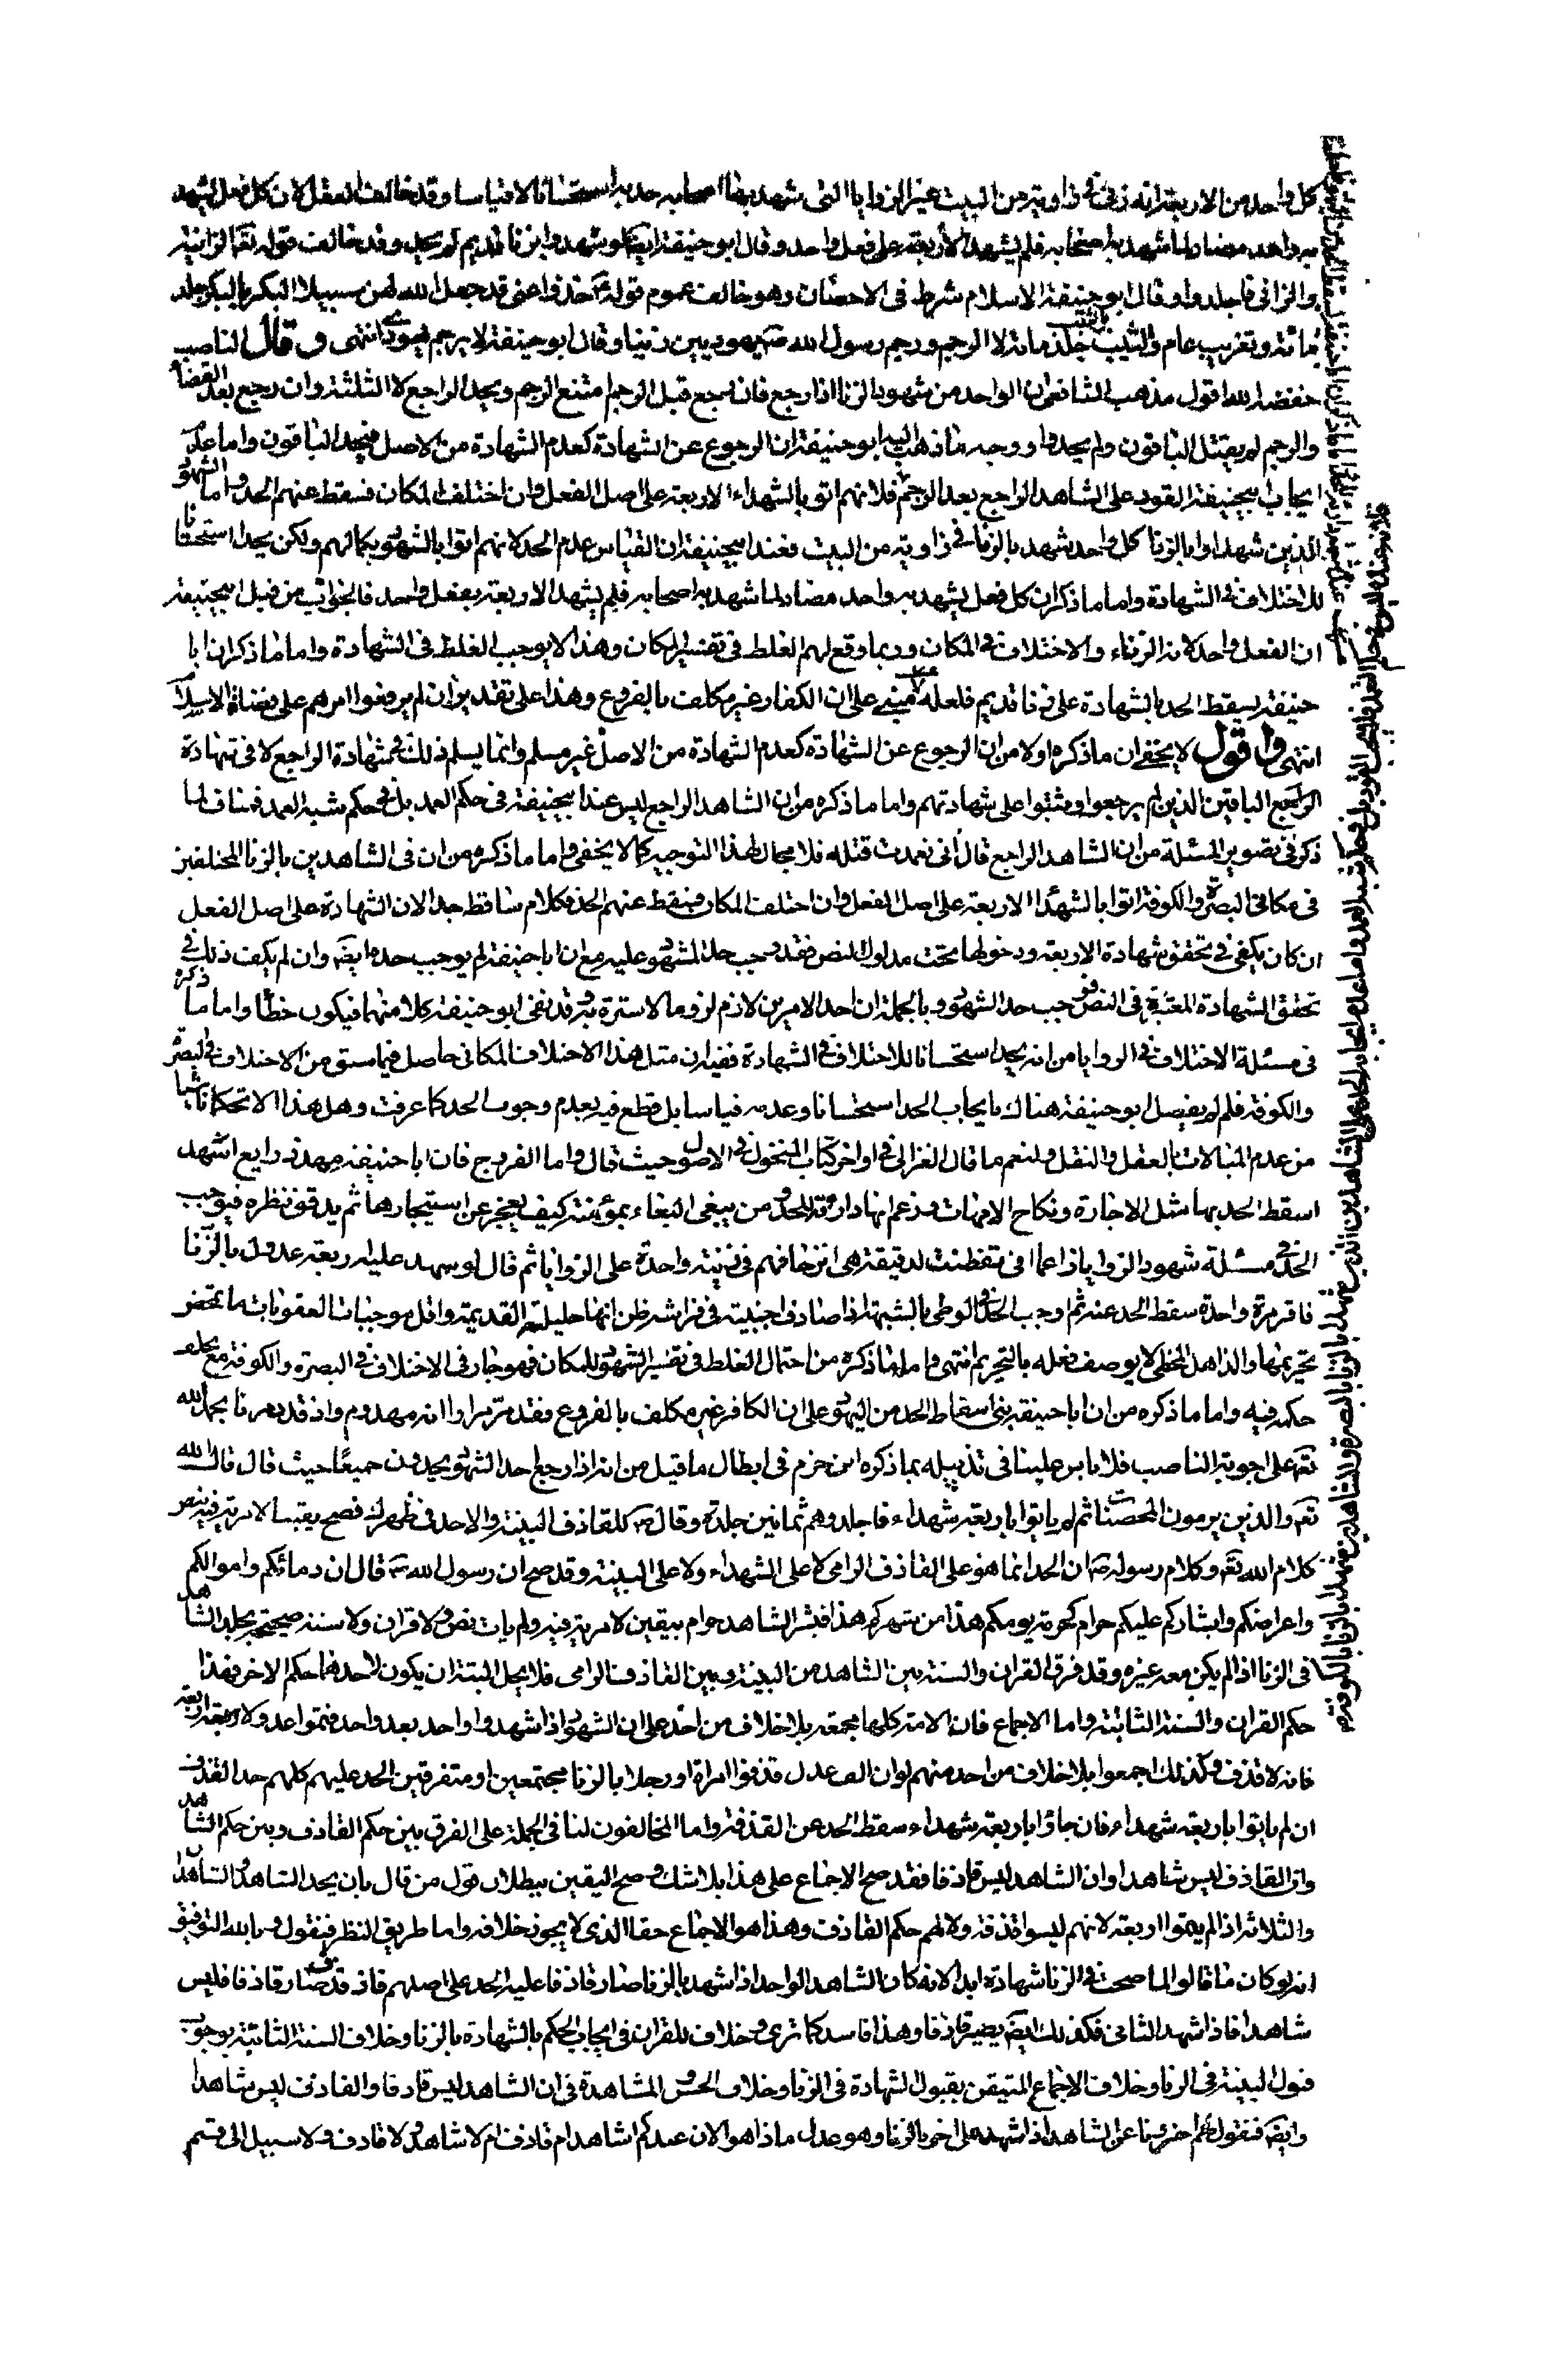 كل واحد من الاربعة انه زنى في زاوية من البيت غير الزوايا التى شهد بها اصحابه حد به استحسانا لا قياسا وقد خالف العقل لان كل فعل يشهد
به واحد مضاد لما شهد به اصحابه فلم يشهد الاربعة على فعل واحد وقال ابو حنيفة ايضا لو شهدوا بزنا قديم لم يحد وقد خالف قوله تعا الزانية
والزانى فاجلدوا وقال ابو حنيفة الاسلام شرط فى الاحصان وهو خالف عموم قوله خذوا عنى قد جعل الله لهن سبيلا البكر بالبكر جلد
مائة وتغريب عام والثيب بالثيب جلد مائة والرجم ورجم رسول الله ص يهوديين زنيا وقال ابو حنيفة لا يرجم يهودى انتهى وقال الناصب
خفضه الله اقول مذهب الشافعى ان الواحد من شهود الزنا اذا رجع فان رجع قبل الرجم امتنع الرجم ويحد الراجع لا الثلثة وان رجع بعد القضاء
والرجم لم يقتل الباقون ولم يحدوا ووجه ما ذهب اليه ابو حنيفة ان الرجوع عن الشهادة كعدم الشهادة من الاصل فيحد الباقون واما عدم
ايجاب ابيحنيفة القود على الشاهد الراجع بعد الرجم فلانهم اتو بالشهداء الاربعة على اصل الفعل وان اختلف المكان فسقط عنهم الحد واما الشهود
الذين شهدوا بالزنا كل واحد شهد بالزنا فى زاوية من البيت فعند ابيحنيفة ان القياس عدم الحد لانهم اتوا بالشهود بكمالهم ولكن يحد استحسانا
للاختلاف فى الشهادة واما ما ذكر ان كل فعل يشهد به واحد مضاد لما شهد به اصحابه فلم يشهد الاربعة بفعل واحد فالجواب من قبل ابيحنيفة
ان الفعل واحد لانه الزناء والاختلاف فى المكان وربما وقع لهم الغلط فى تفسير المكان وهذا لا يوجب الغلط فى الشهادة واما ما ذكر ان ابا
حنيفة يسقط الحد بالشهادة على زنا قديم فلعله مبنى على ان الكفار غير مكلف بالفروع وهذا على تقدير ان لم يرفعوا امرهم على قضاة الاسلام
انتهى واقول لا يخفى ان ما ذكره اولا من ان الرجوع عن الشهادة كعدم الشهادة من الاصل غير مسلم وانما يسلم ذلك فى شهادة الراجع لا فى شهادة
الراجع الباقين الذين لم يرجعوا وثبتوا على شهادتهم واما ما ذكره من ان الشاهد الراجع ليس عند ابيحنيفة فى حكم العمد بل فى حكم شبه العمد فمناف لما
ذكر فى تصوير المسئلة من ان الشاهد الراجع قال انى تعمدت قتله فلا مجال لهذا التوجيه كما لا يخفى واما ما ذكره من ان فى الشاهدين بالزنا المختلفين
فى مكانى البصرة والكوفة اتوا بالشهداء الاربعة على اصل الفعل وان اختلف المكان فيسقط عنهم الحد فكلام ساقط جدا لان الشهادة على اصل الفعل
ان كان يكفى فى تحقق شهادة الاربعة ودخولها تحت مدلول النص فقد وجب حد المشهود عليه مع ان ابا حنيفة لم يوجب حده ايضا وان لم يكف ذلك فى
تحقق الشهادة المعتبرة فى النص فوجب حد الشهود وبالجملة ان احد الامرين لازم لزوما لا سترة به وقد نفى ابو حنيفة كلا منهما فيكون خطأ واما ما ذكره
فى مسئلة الاختلاف فى الزوايا من انه يحد استحسانا للاختلاف فى الشهادة ففيه ان مثل هذا الاختلاف المكانى حاصل فيما سبق من الاختلاف فى البصرة
والكوفة فلم لم يفصل ابو حنيفة هناك بايجاب الحد استحسانا وعدمه قياسا بل قطع فيه بعدم وجوب الحد كما عرفت وهل هذا الا تحكما ناشيا
من عدم المبالات بالعقل والنقل ولنعم ما قال الغزالى فى اواخر كتاب المنخول فى الاصول حيث قال واما الفروج فان ابا حنيفة مهد ذرايع اشهد
اسقط الحد بها مثل الاجارة ونكاح الامهات وزعم انها دارئة للحد ومن يبغى البغاء بمؤنته كيف يعجز عن استيجارها ثم يدقق نظره فيوجب
الحد فى مسئلة شهود الزوايا زاعما انى تفطنت لدقيقة هى انزحافهم فى زنية واحدة على الزوايا ثم قال لو شهد عليه اربعة عدول بالزنا
فاقر مرة واحدة سقط الحد عنه ثم اوجب الحد فى الوطى بالشبهة اذا صادف اجنبية فى فراشه ظن انها حليلته القديمة واقل موجبات العقوبات ما تمحض
تحريمها والذاهل المخطى لا يوصف فعله بالتحريم انتهى واما ما ذكره من احتمال الغلط فى تفسير الشهود للمكان فهو جار فى الاختلاف فى البصرة والكوفة مع تخلف
حكمه فيه واما ما ذكره من ان ابا حنيفة بنى اسقاط الحد من اليهود على ان الكافر غير مكلف بالفروع فقد مر مرارا انه مهدوم واذ قد مررنا بحمد الله
تعا على اجوبة الناصب فلا باس علينا فى تذييله بما ذكره ابن حزم فى ابطال ما قيل من انه اذا رجع احد الشهود يحدون جميعا حيث قال قال الله
تعا والذين يرمون المحصنات ثم لم ياتوا باربعة شهداء فاجلدوهم ثمانين جلدة وقال ص للقاذف البينة والا حد فى ظهرك فصح يقينا لا مرية فيه بنص
كلام الله تعا وكلام رسوله ص ان الحد انما هو على القاذف الرامى لا على الشهداء ولا على البينة وقد صح ان رسول الله ص قال ان دمائكم واموالكم
واعراضكم وابشاركم عليكم حرام كحرمة يومكم هذا من شهركم هذا فبشر الشاهد حرام بيقين لا مرية فيه ولم يات نص قران ولا سنة صحيحة بجلد الشاهد
فى الزنا اذا لم يكن معه غيره وقد فرق القران والسنة بين الشاهد من البينة وبين القاذف الرامى فلا يحل البتة ان يكون لاحدهما حكم الاخر فهذا
حكم القران والسنة الثابتة واما الاجماع فان الامة كلها مجمعة بلا خلاف من احد على ان الشهود اذا شهدوا واحد بعد واحد فتموا عدولا اربعة
فانه لا قذف وكذلك اجمعوا بلا خلاف من احد منهم لو ان الف عدل قذفوا امراة او رجلا بالزنا مجتمعين او متفرقين الحد عليهم كلهم حد القذف
ان لم ياتوا باربعة شهداء فان جاؤا باربعة شهداء سقط الحد عن القذفة واما المخالفون لنا فى الجملة على الفرق بين حكم القاذف وبين حكم الشاهد
وان القاذف ليس شاهدا وان الشاهد ليس قاذفا فقد صح الاجماع على هذا بلا شك وصح اليقين ببطلان قول من قال بان يحد الشاهد والشاهدان
والثلاثة اذا لم يتموا اربعة لانهم ليسوا قذفة ولا لهم حكم القاذف وهذا هو الاجماع حقا الذى لا يجوز خلافه واما طريق النظر فنقول وبالله التوفيق
انه لو كان ما قالوا لما صحت فى الزنا شهادة ابدا لانه كان الشاهد الواحد اذا شهد بالزنا صار قاذفا عليه الحد على اصلهم فاذ قد صار قاذفا فليس
شاهدا فاذا شهد الثانى فكذلك ايضا يصير قاذفا وهذا فاسد كما ترى وخلاف للقران فى ايجاب الحكم بالشهادة بالزنا وخلاف السنة الثابتة بوجوب
قبول البينة فى الزنا وخلاف الاجماع المتيقن بقبول الشهادة فى الزنا وخلاف الحس والمشاهدة فى ان الشاهد ليس قاذفا والقاذف ليس شاهدا
وايضا فنقول لهم اخبرونا عن الشاهد اذا شهد على اخر بالزنا وهو عدل ماذا هو الان عندكم اشاهد ام قاذف ام لا شاهد ولا قاذف ولا سبيل الى قسم